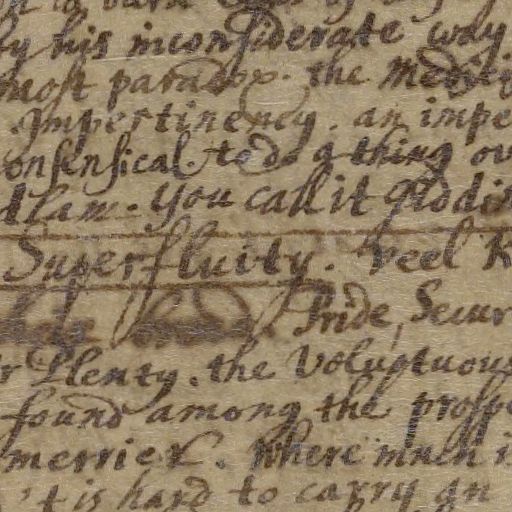 by his inconsiderate way
most paradox. the
Impertinency. an impe
onsensical. to do a thing ov
dlam. You call it
Superfluity. Veel
Pride, Secur
r Plenty. the Voluptuous
found among the prosp
merrier. Where much i
't is hard to carry an